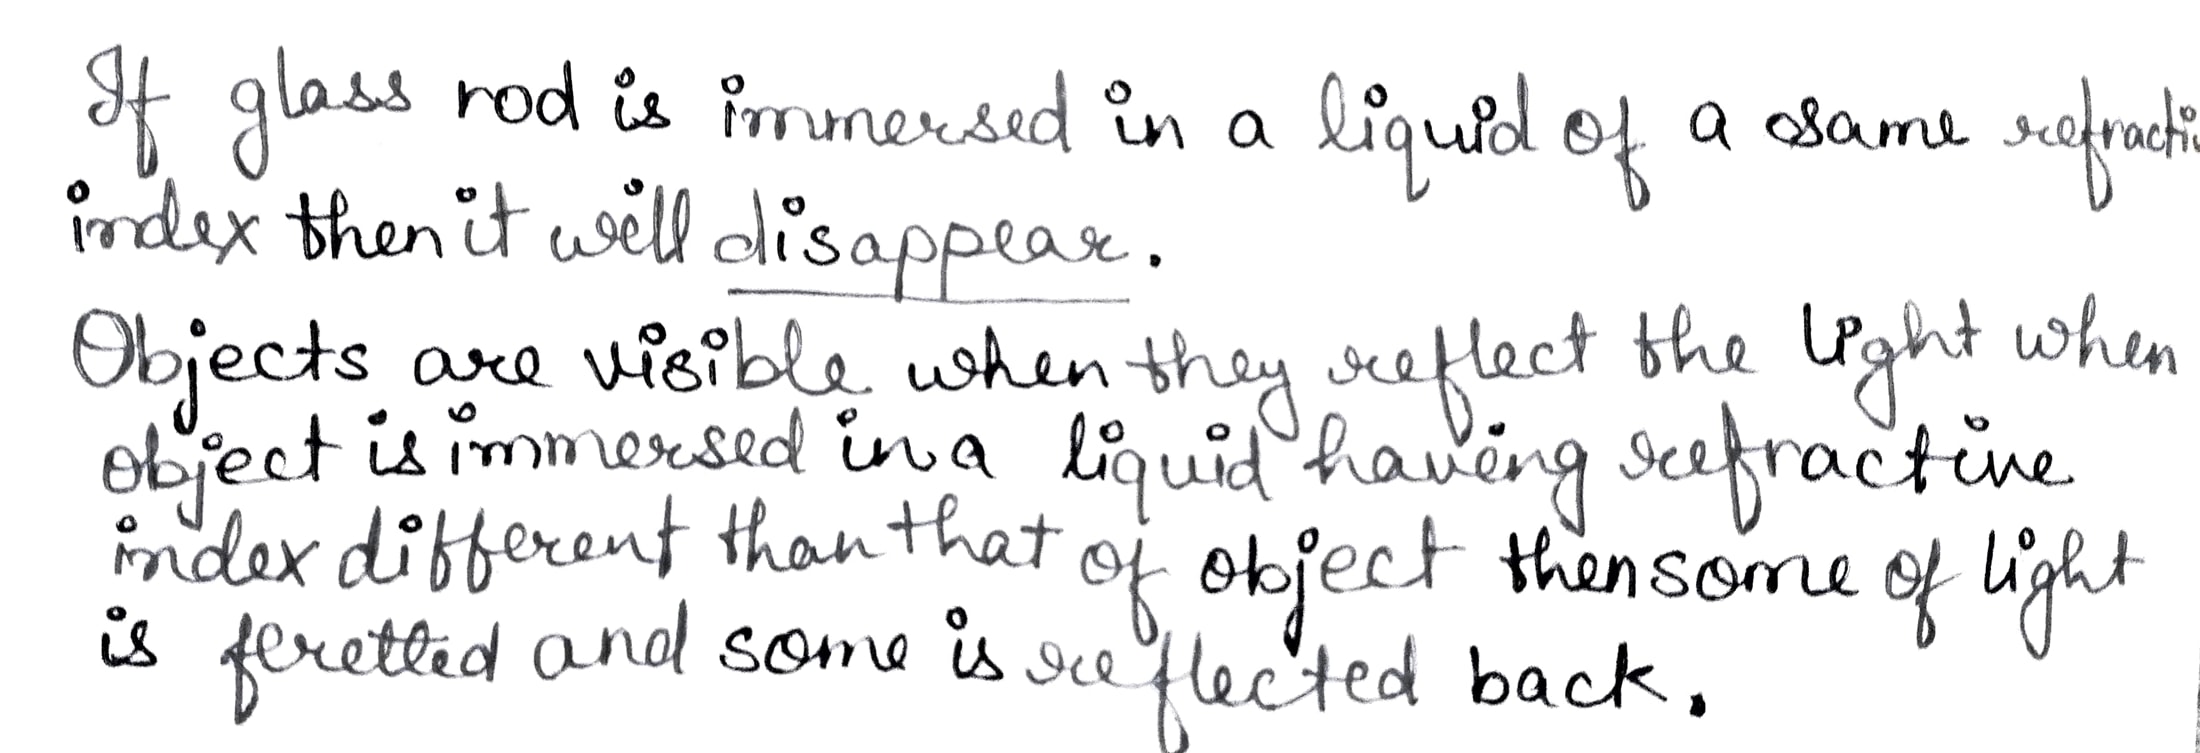 If glass rod is immersed in a liquid of a same refracti
index then it will disappear.
Objects are visible when they reflect the light when
object is immersed in a liquid having refractive
index different than that of object then some of light
is feretted and some is reflected back.